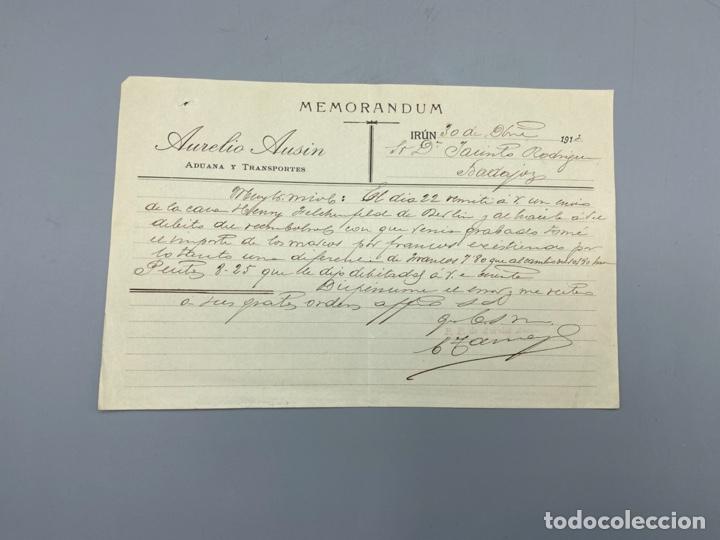 MEMORANDUM
Aurelio Ausin
ADUANA Y TRANSPORTES
IRÚN 30 de Obre 191
Sr Dn Jacinto Rodrigue
Badajoz
Muy Sr. mio: El dia 22 remiti á V. un envio
de la casa Henry de Berlin y al hacerle á V. el
débito del reembolso con que venia grabado tomé
el importe de los marcos por francos existiendo por
lo tanto una diferencia de francos 7.80 que al cambio
Ptas 8-25 que le dejo debitadas á V. en cuenta
Dispénseme el error y me reitero
a sus gratas ordenes affmo s.s.
q. b. s. m.
todocoleccion
todocoleccion.net